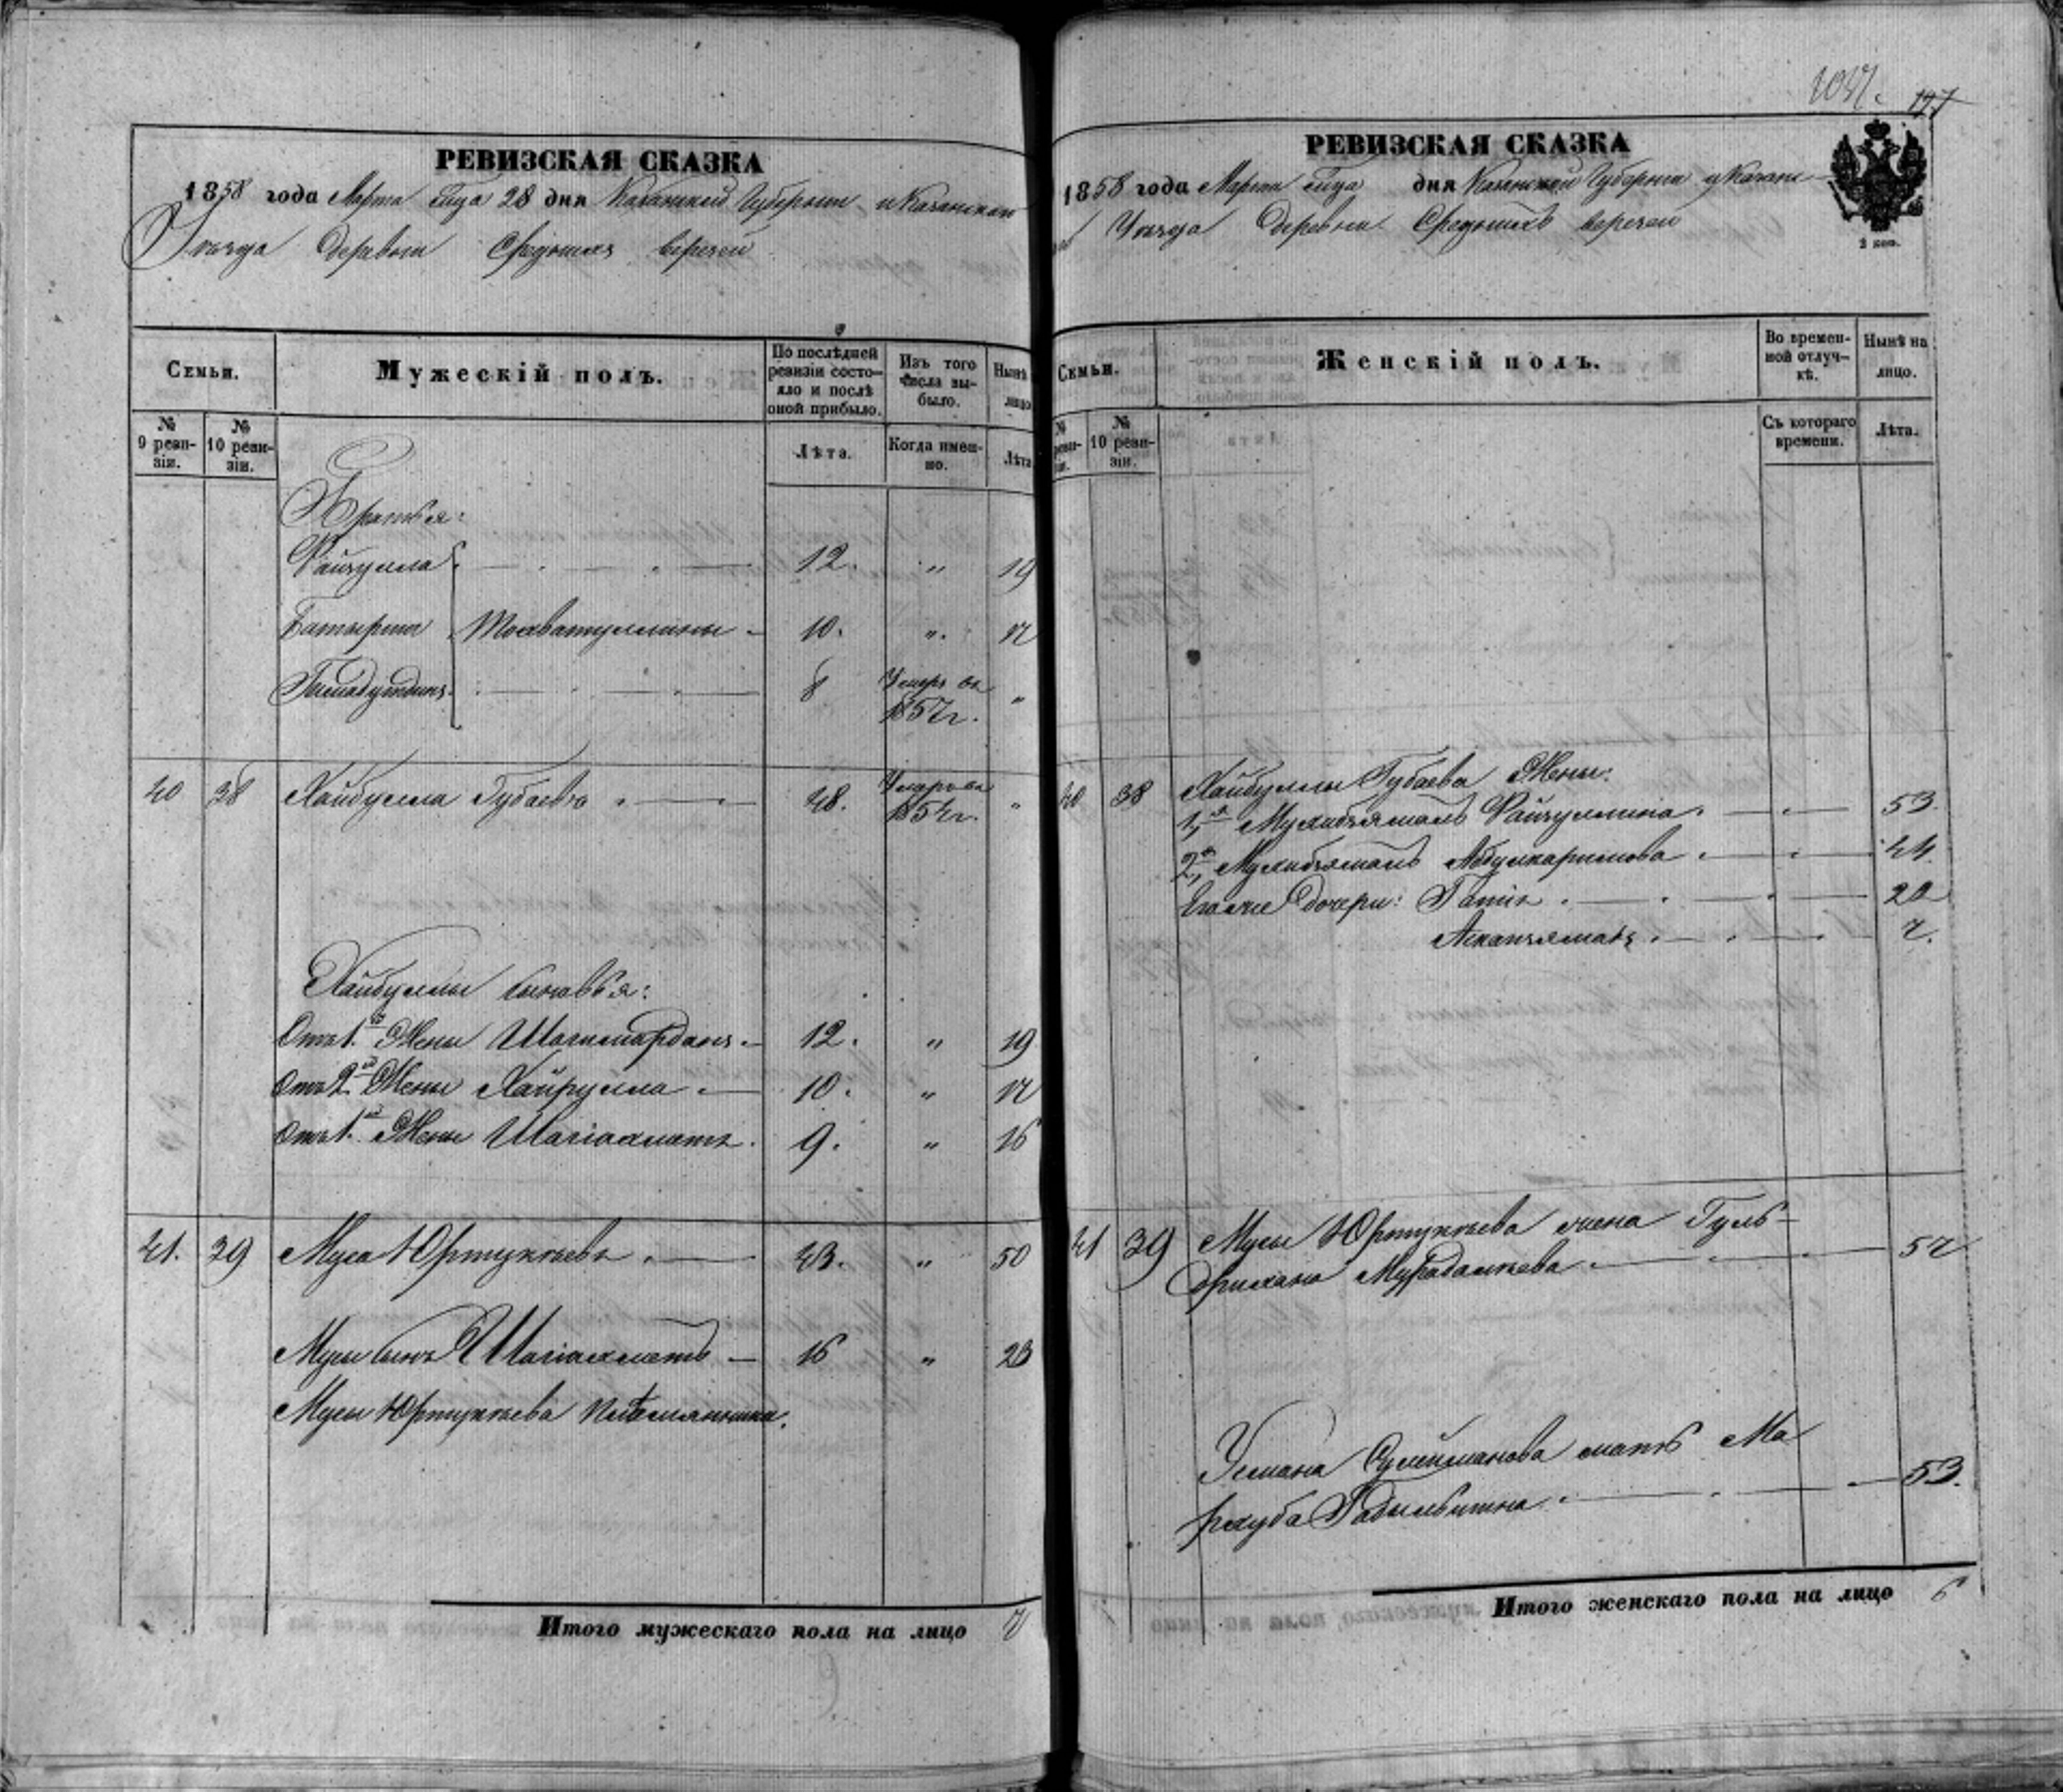 РЕВИЗСКАЯ СКАЗКА
1858 года Марта мца 28 дня Казанской Губернии и Казанскаго
Уѣзда Деревни Среднихъ верезей
Семьи.
Мужескій полъ.
По послѣдней ревизіи состояло и послѣ оной прибыло.
Изъ того числа выбыло.
Нынѣ на лицо
№ 9 ревизіи.
№ 10 ревизіи.
Лѣта.
Когда именно.
Лѣта
Братья:
Файзулла 12. " 19
Батырша Мохватуллины 10. " 17
8 Умеръ въ 1857 г. "
40 38 Хайбулла Губаевъ 48. Умеръ въ 1854 г. "
Хайбуллы сыновья:
Отъ 1й Жены Шагимарданъ 12. " 19
Отъ 2й Жены Хайрулла 10. " 17
Отъ 1й Жены Шагіахметъ 9. " 16
41. 39 Муса Юртукаевъ 43. " 50
Мусы сынъ Шагіахметъ 16 " 23
Мусы Юртукаева племянники.
Итого мужескаго пола на лицо 7
127
РЕВИЗСКАЯ СКАЗКА
1858 года Марта мца дня Казанской Губернии и Казанс
каго Уѣзда Деревни Среднихъ верезей
2 коп.
Семьи.
Женскій полъ.
Во временной отлучкѣ.
Нынѣ на лицо.
№ ревизіи.
№ 10 ревизіи.
Съ котораго времени.
Лѣта.
40 38 Хайбуллы Губаева Жены:
1,я Мухибзямалъ Файзуллина 53.
2,я Мухибзямалъ Абдулкаримова 44.
Его же дочери: 20
7.
41 39 Мусы Юртукаева жена Гуль-
57
Усмана Сулейманова мать Ма
рхуба Габильвитна 53.
Итого женскаго пола на лицо 6